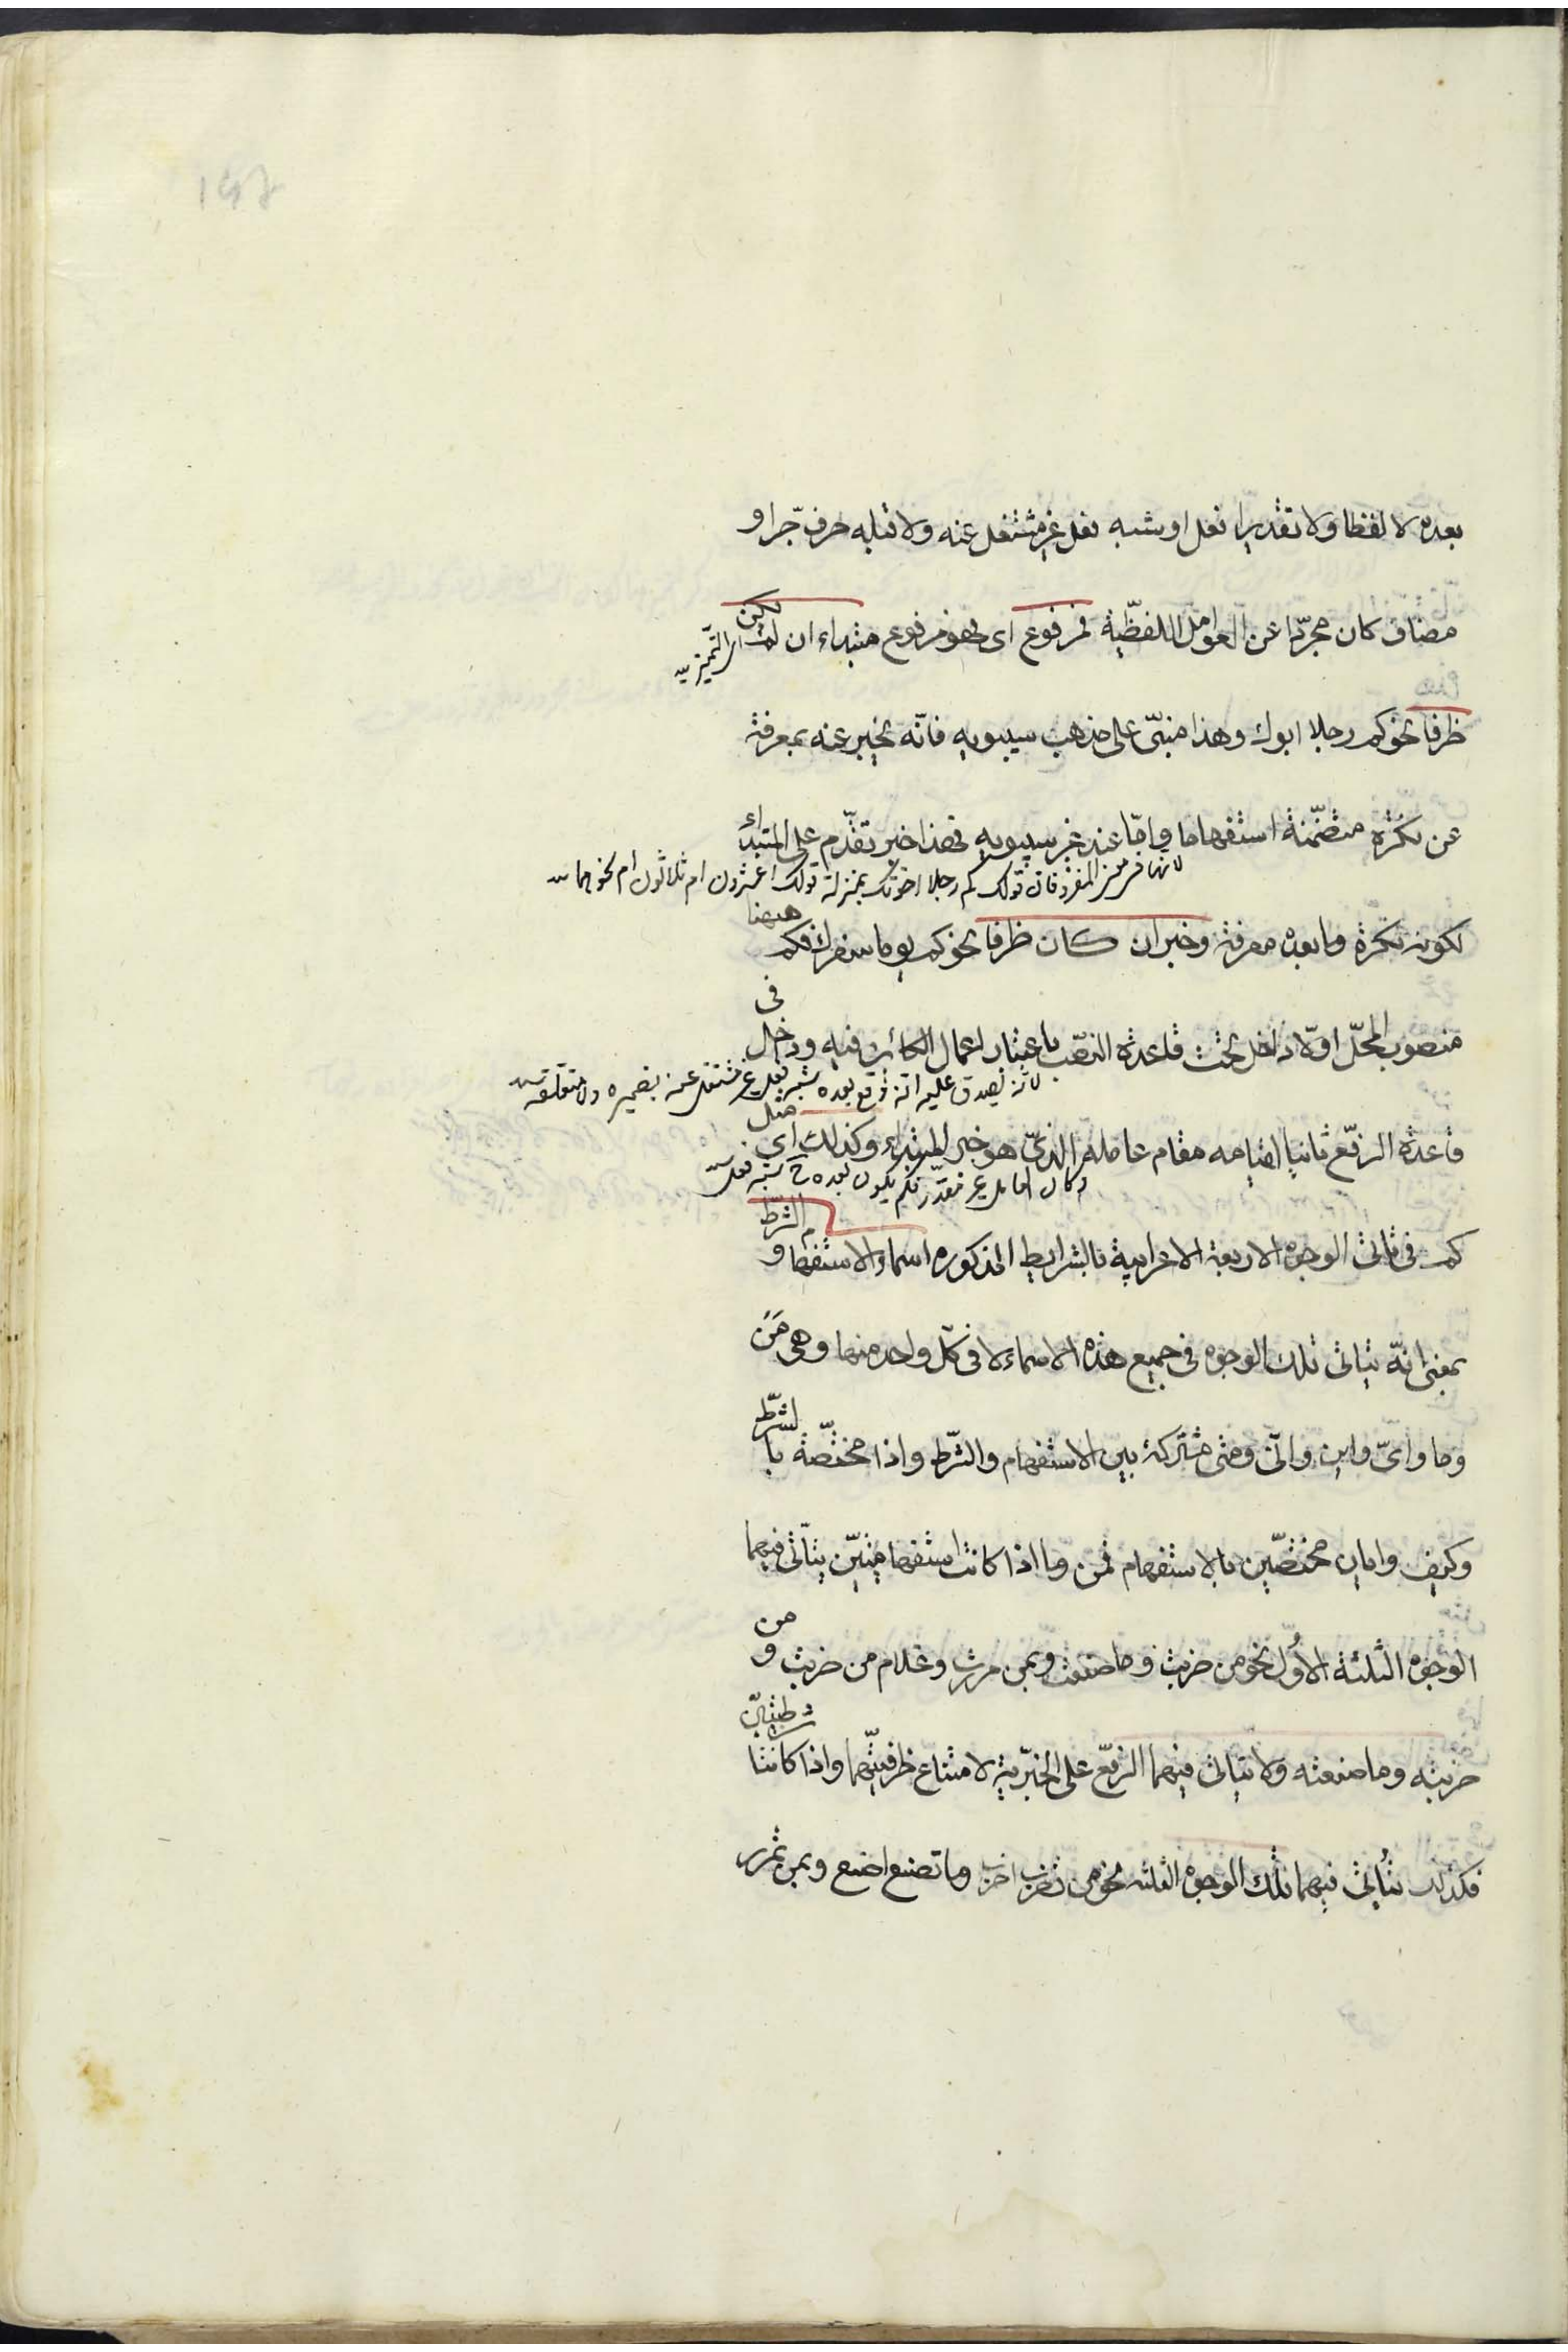 بعده لا لفظا ولا تقديرا فعل او شبه فعل غير مشتغل عنه ولا قبله حرف جر او
مضاف كان مجردا عن العوامل اللفظية فمرفوع اى فهو مرفوع مبتداء ان لم يكن
اى التميز
ظرفا نحو كم رجلا ابوك وهذا مبنى على مذهب سيبويه فانه يخبر عنه بمعرفة
عن نكرة متضمنة استفهاما واما عند غير سيبويه فهذا خبر تقدم على المبتداء
قولك كم رجلا اخوتك بمنزلة قولك اعشرون ام ثلاثون ام نحوهما
لكونه نكرة وما بعده معرفة وخبر ان كان ظرفا نحو كم يوما سفرك فكم ههنا
منصوب المحل اولا داخل تحت قاعدة النصب باعتبار اعمال الكائن فيه وداخل فى
لانه يصدق عليه انه وقع بعده شبه فعل غير مشتغل عنه بضميره ولا متعلقه
قاعدة الرفع ثانيا لقيامه مقام عامله الذى هو خبر المبتداء وكذلك اى مثل
يكون بعده ح شبه فعل
كم فى تاتى الوجوه الاربعة الاعرابية بالشرايط المذكوره اسماء الاستفهام والشرط
بمعنى انه يتاتى تلك الوجوه فى جميع هذه الاسماء لا فى كل واحد منها وهى من
وما واى واين وانى ومتى مشتركة بين الاستفهام والشرط واذا مختصة بالشرط
وكيف وايان مختصين بالاستفهام فمن وما اذا كانتا استفهاميتين يتاتى فيهما
الوجوه الثلثة الاول نحو من ضربت وما صنعت وبمن مررت وغلام من ضربت ومن
ضربته وما صنعته ولا يتاتى فيهما الرفع على الخبرية لامتناع ظرفيتهما واذا كانتا شرطيتين
فكذلك تتاتى فيهما تلك الوجوه الثلثه نحو من تضرب اضرب وما تصنع اصنع وبمن تمرر